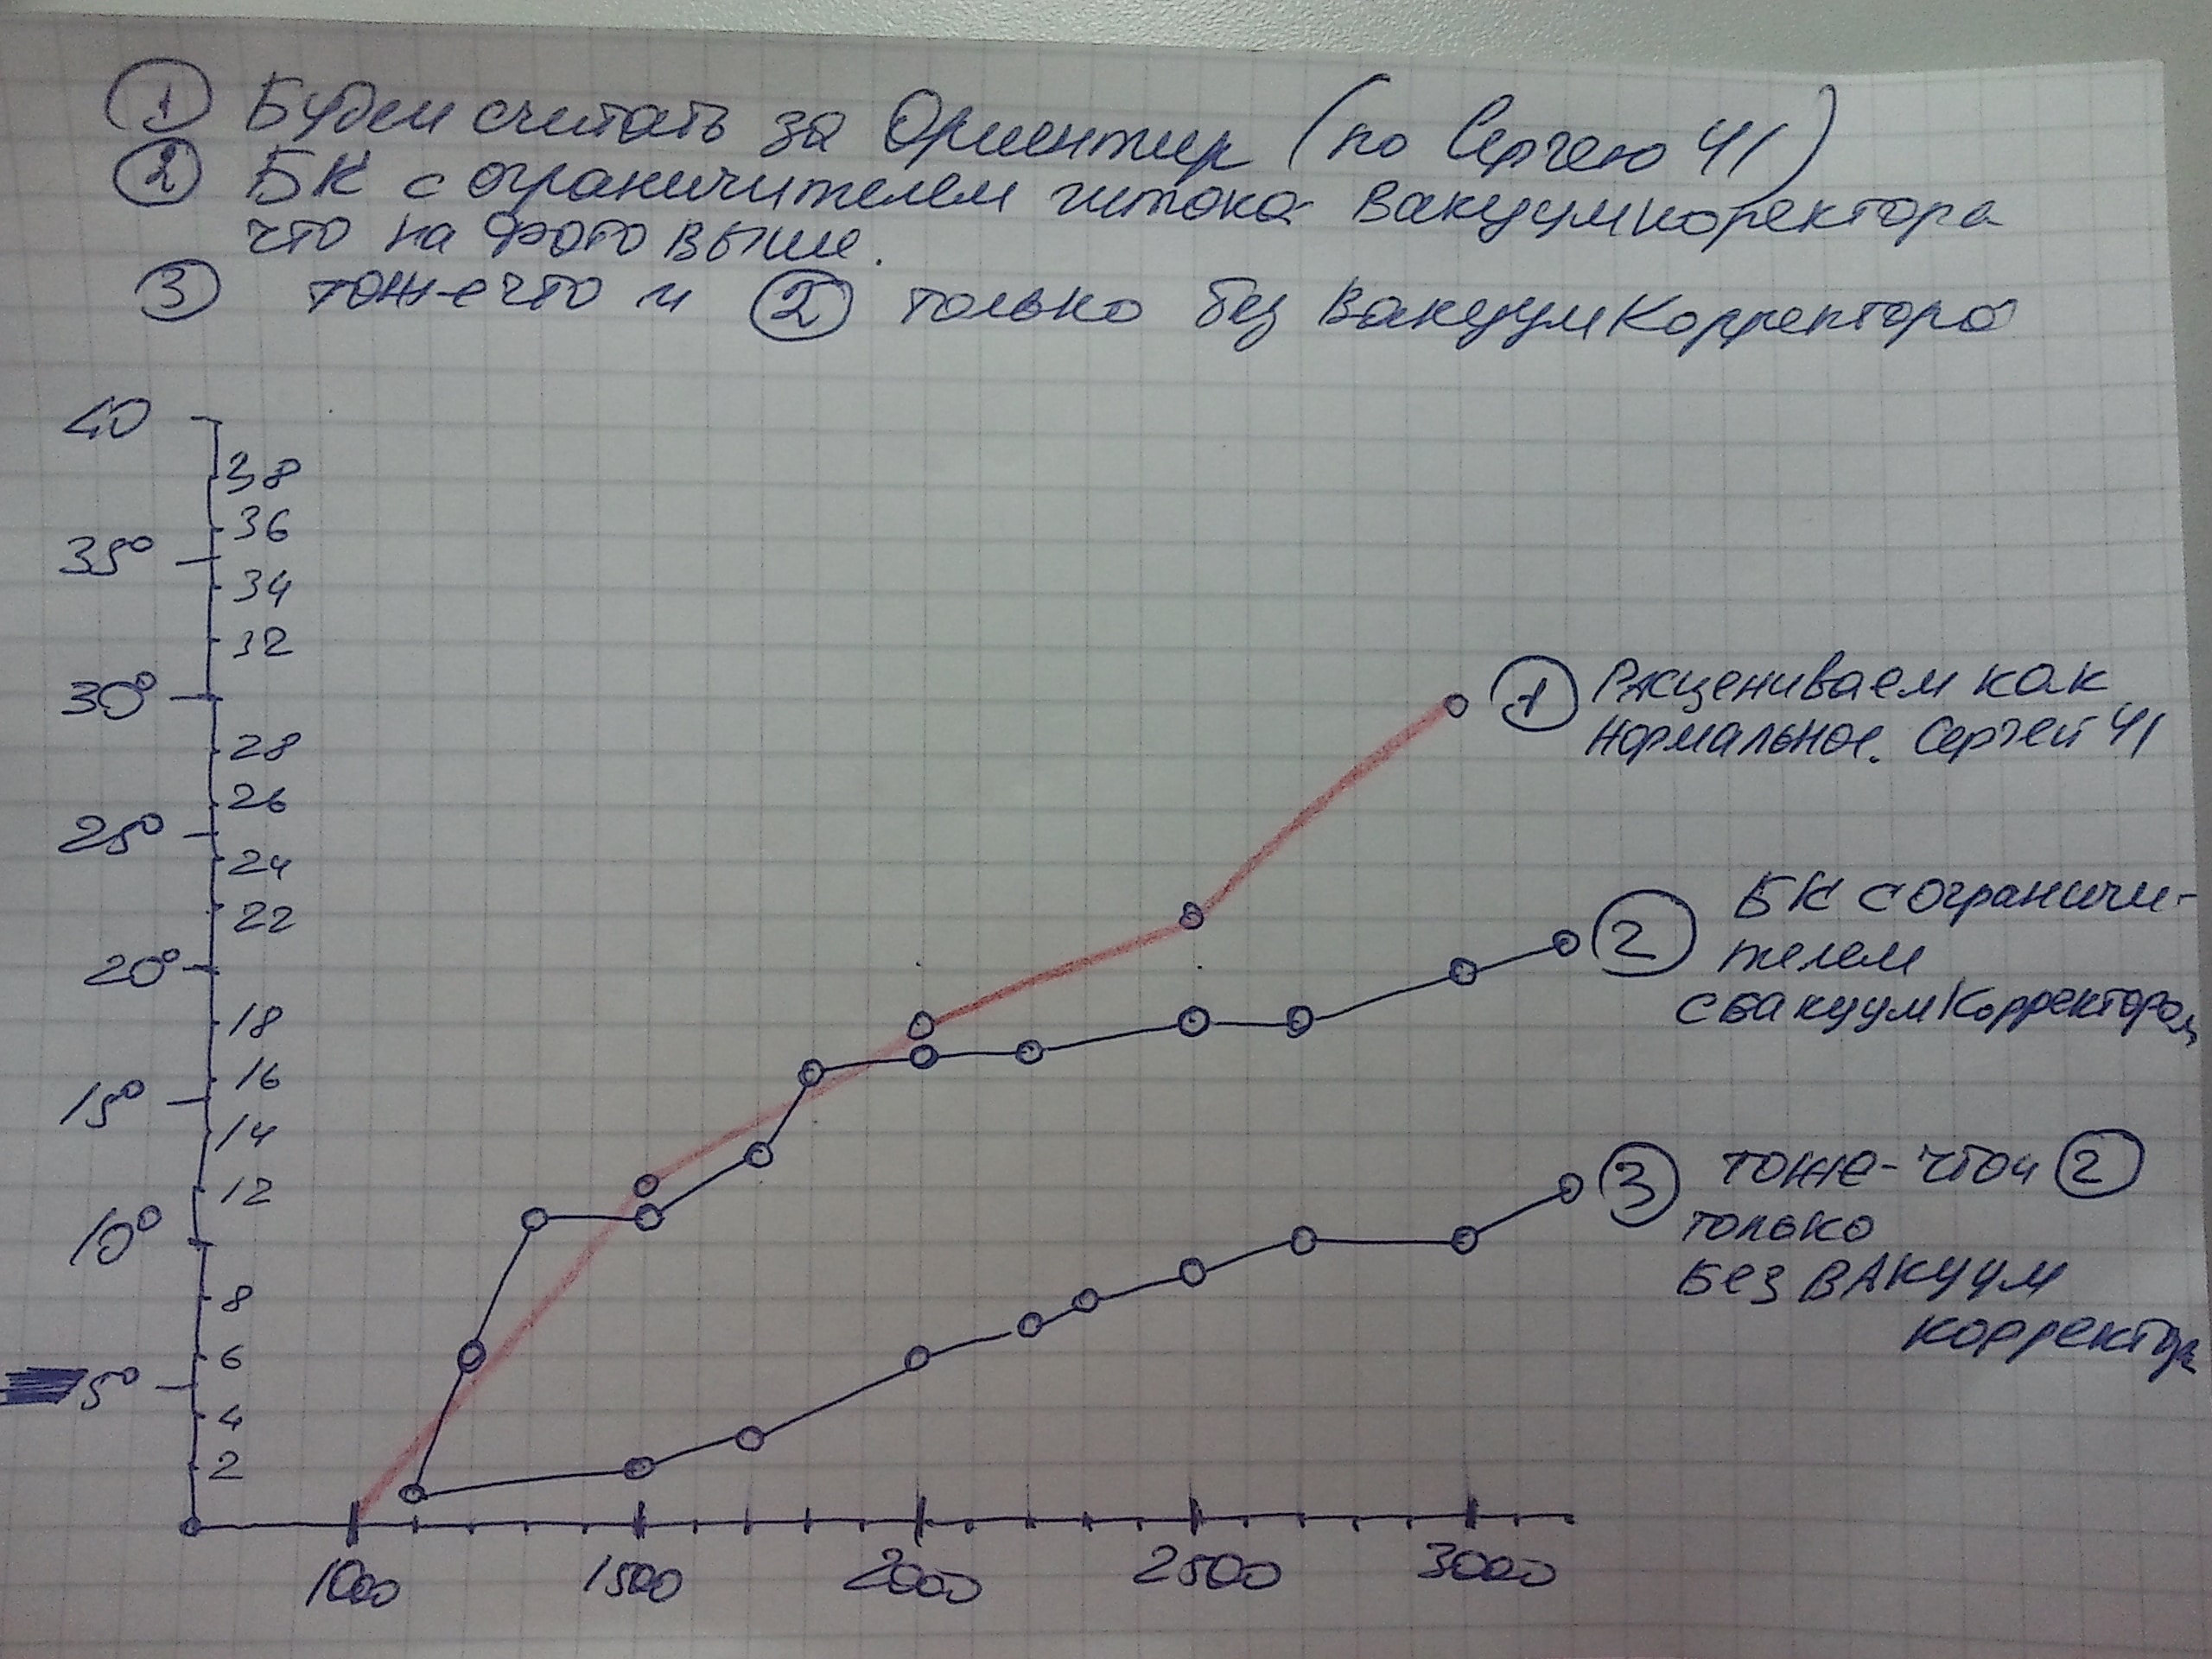 ① Будем считать за Ориентир (по Сергею 41)
② БК с ограничителем штока Вакуумкоректора
что на фото выше.
③ тоже что и ② только без ВакуумКорректора
40
38
36
35°
34
32
30°
28
26
25°
24
22
20°
18
16
15°
14
12
10°
8
6
5°
4
2
1000 1500 2000 2500 3000
① Расцениваем как
нормальное. Сергей 41
② БК с ограничи-
телем
с вакуумКорректором
③ тоже-что и ②
только
Без ВАкуум
корректора